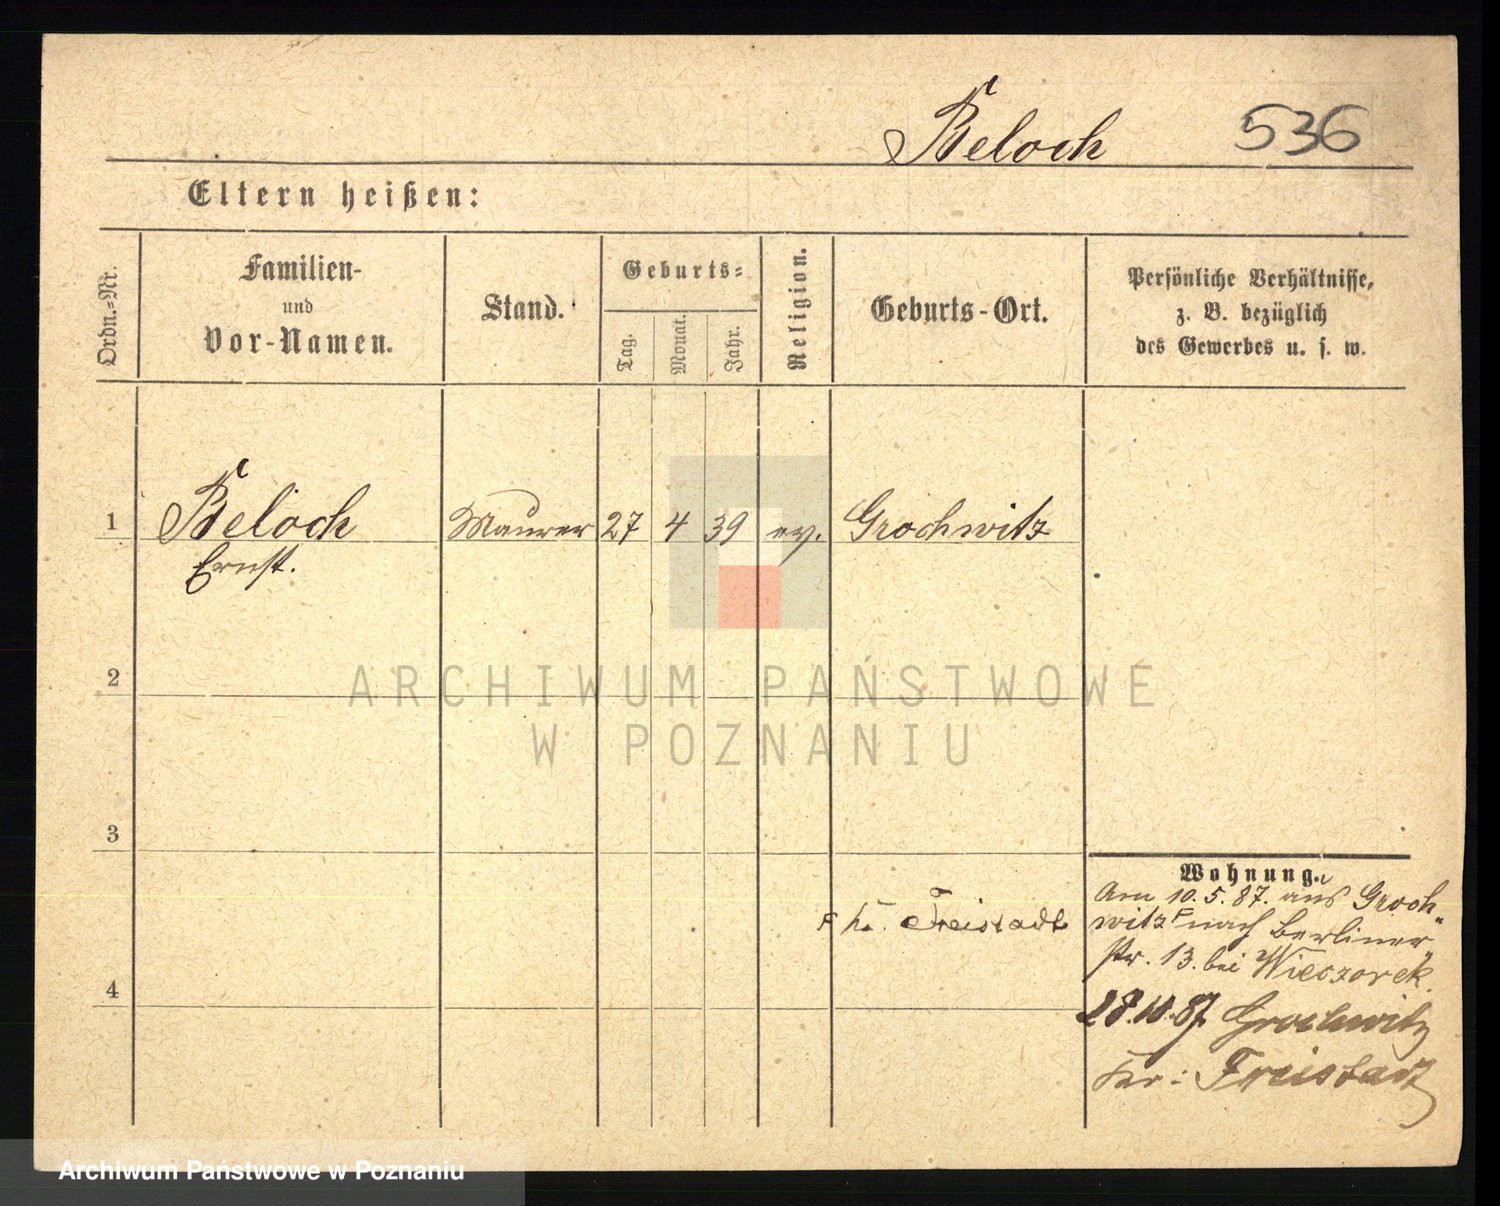 Beloch 536
Eltern heißen:
Ordn.-Nr.
Familien-
und
Vor-Namen.
Stand.
Geburts-
Tag.
Monat.
Jahr.
Religion.
Geburts-Ort.
Persönliche Verhältnisse,
z. B. bezüglich
des Gewerbes u. s. w.
1 Beloch Maurer 27 4 39 ev. Grochwitz
Ernst.
2
ARCHIWUM PAŃSTWOWE
W POZNANIU
3
Wohnung.
Am 10.5.87. aus Groch-
witz F nach Berliner-
Str. 13. bei Wieczorek.
F Kr. Freistadt
4
28.10.87 Grochwitz
Kr: Freistadt
Archiwum Państwowe w Poznaniu